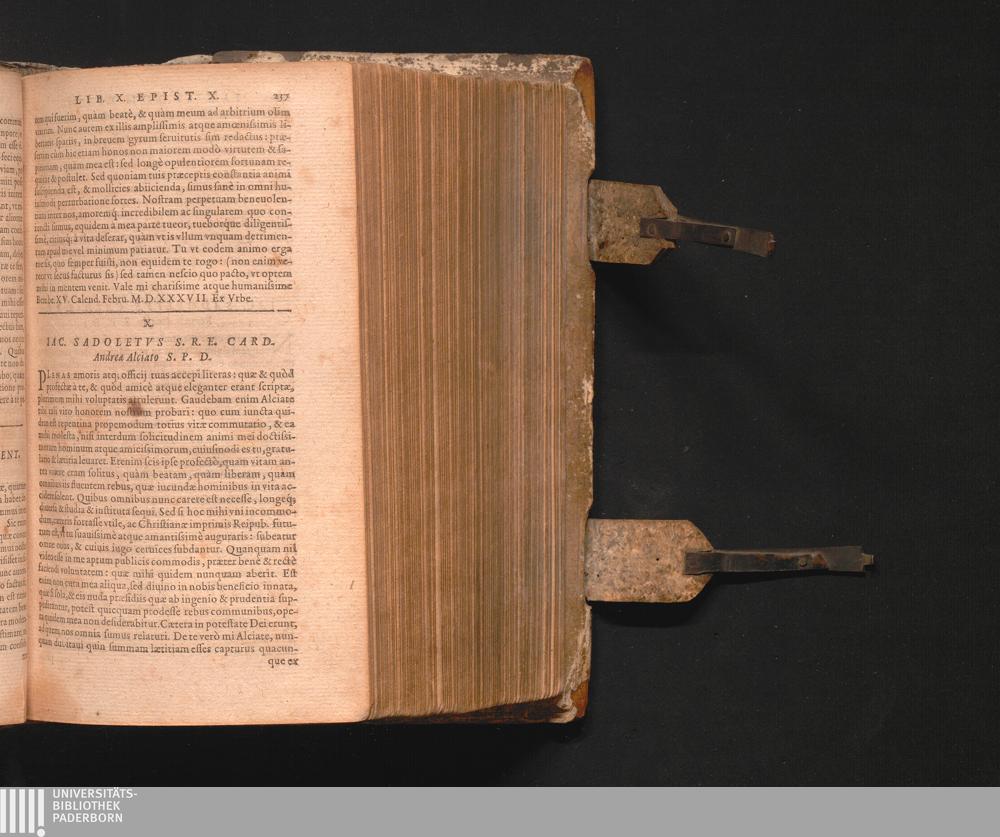 LIB. X. EPIST. X. 237
qui fuerim, quàm beatè, & quàm meum ad arbitrium olim
Nunc autem ex illis amplissimis atque amœnissimis li-
spatiis, in breuem gyrum seruitutis sim redactus: præ-
cùm hic etiam honos non maiorem modò virtutem & sa-
quàm mea est: sed longè opulentiorem fortunam re-
& postulet. Sed quoniam tuis præceptis constantia animi
est, & mollicies abiicienda, simus sanè in omni hu-
perturbatione fortes. Nostram perpetuam beneuolen-
inter nos, amoremq́; incredibilem ac singularem quo con-
simus, equidem à mea parte tueor, tueborque diligentis-
à vita deserar, quàm vt is vllum vnquam detrimen-
apud me vel minimum patiatur. Tu vt eodem animo erga
quo semper fuisti, non equidem te rogo: (non enim ve-
vt secus facturus sis) sed tamen nescio quo pacto, vt optem
mihi in mentem venit. Vale mi charissime atque humanissime
Bembe. XV. Calend. Febru. M.D.XXXVII. Ex Vrbe.
X.
IAC. SADOLETVS S. R. E. CARD.
Andreæ Alciato S. P. D.
PLENAS amoris atq; officij tuas accepi literas: quæ & quòd
profectæ à te, & quòd amicè atque eleganter erant scriptæ,
plurimum mihi voluptatis attulerunt. Gaudebam enim Alciate
tibi tali viro honorem nostrum probari: quo cum iuncta qui-
dem est repentina propemodum totius vitæ commutatio, & ea
mihi molesta, nisi interdum solicitudinem animi mei doctissi-
morum hominum atque amicissimorum, cuiusmodi es tu, gratu-
latio & lætitia leuaret. Etenim scis ipse profectò, quam vitam an-
tea viuere eram solitus, quàm beatam, quàm liberam, quàm
omnibus iis fluentem rebus, quæ iucundæ hominibus in vita ac-
cidere solent. Quibus omnibus nunc carere est necesse, longeq́;
diuersa & studia & instituta sequi. Sed si hoc mihi vni incommo-
dum, cæteris fortasse vtile, ac Christianæ imprimis Reipub. futu-
rum est, vt tu suauissimè atque amantissimè auguraris: subeatur
onus, & cuiuis iugo ceruices subdantur. Quanquam nil
video esse in me aptum publicis commodis, præter benè & rectè
faciendi voluntatem: quæ mihi quidem nunquam aberit. Est
enim non cura mea aliqua, sed diuino in nobis beneficio innata,
quæ si sola, & eis nuda præsidiis quæ ab ingenio & prudentia sup-
peditantur, potest quicquam prodesse rebus communibus, ope-
ra quidem mea non desiderabitur. Cætera in potestate Dei erunt,
ad quem nos omnia sumus relaturi. De te verò mi Alciate, nun-
quam dubitaui quin summam lætitiam esses capturus quacun-
que ex
UNIVERSITÄTS-
BIBLIOTHEK
PADERBORN